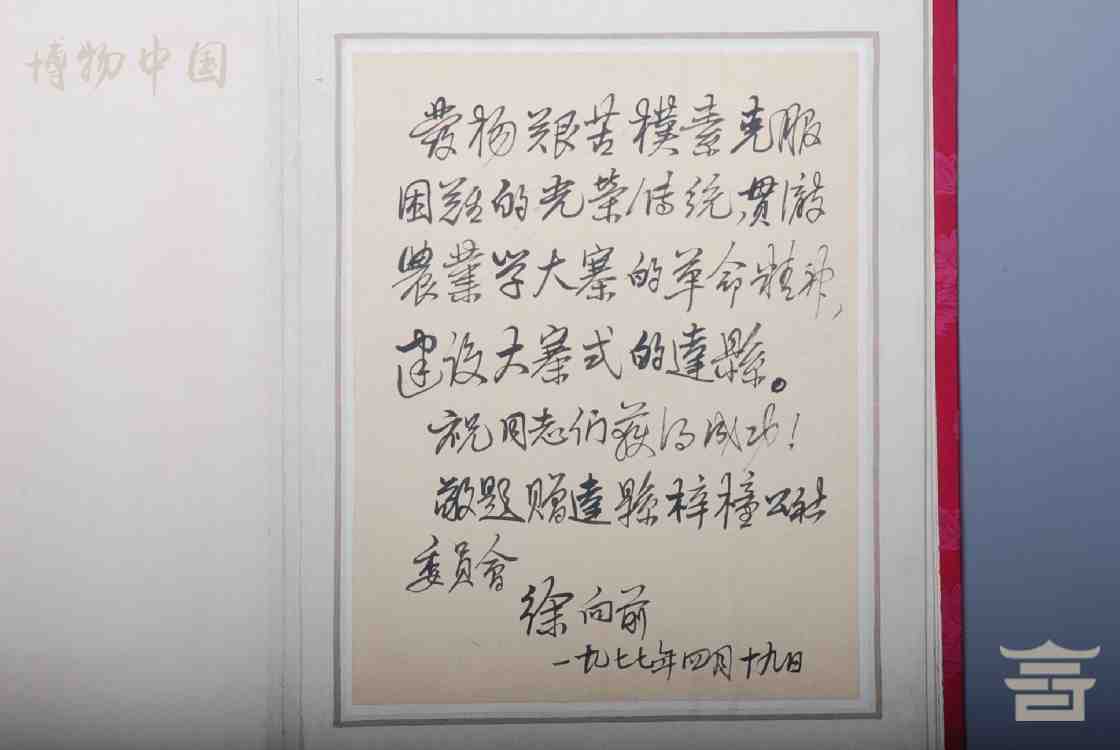 博物中国
發扬艰苦樸素克服
困难的光荣傳统,贯澈
農業学大寨的革命精神,
建设大寨式的達縣。
祝同志们获得成功!
敬题赠達縣梓橦公社
委員會
徐向前
一九七七年四月十九日